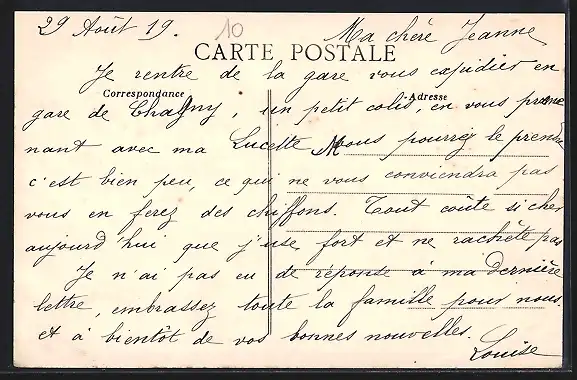 29 Août 19. 10 Ma chère Jeanne
CARTE POSTALE
Je rentre de la gare vous expédier en
Correspondance Adresse
gare de Chagny, un petit colis, en vous prome
nant avec ma Lucette Vous pourrez le prendre
c'est bien peu, ce qui ne vous conviendra pas
vous en ferez des chiffons. Tout coûte si cher
aujourd'hui que j'use fort et ne rachète pas
Je n'ai pas eu de réponse à ma dernière
lettre, embrassez toute la famille pour nous
et à bientôt de vos bonnes nouvelles.
Louise